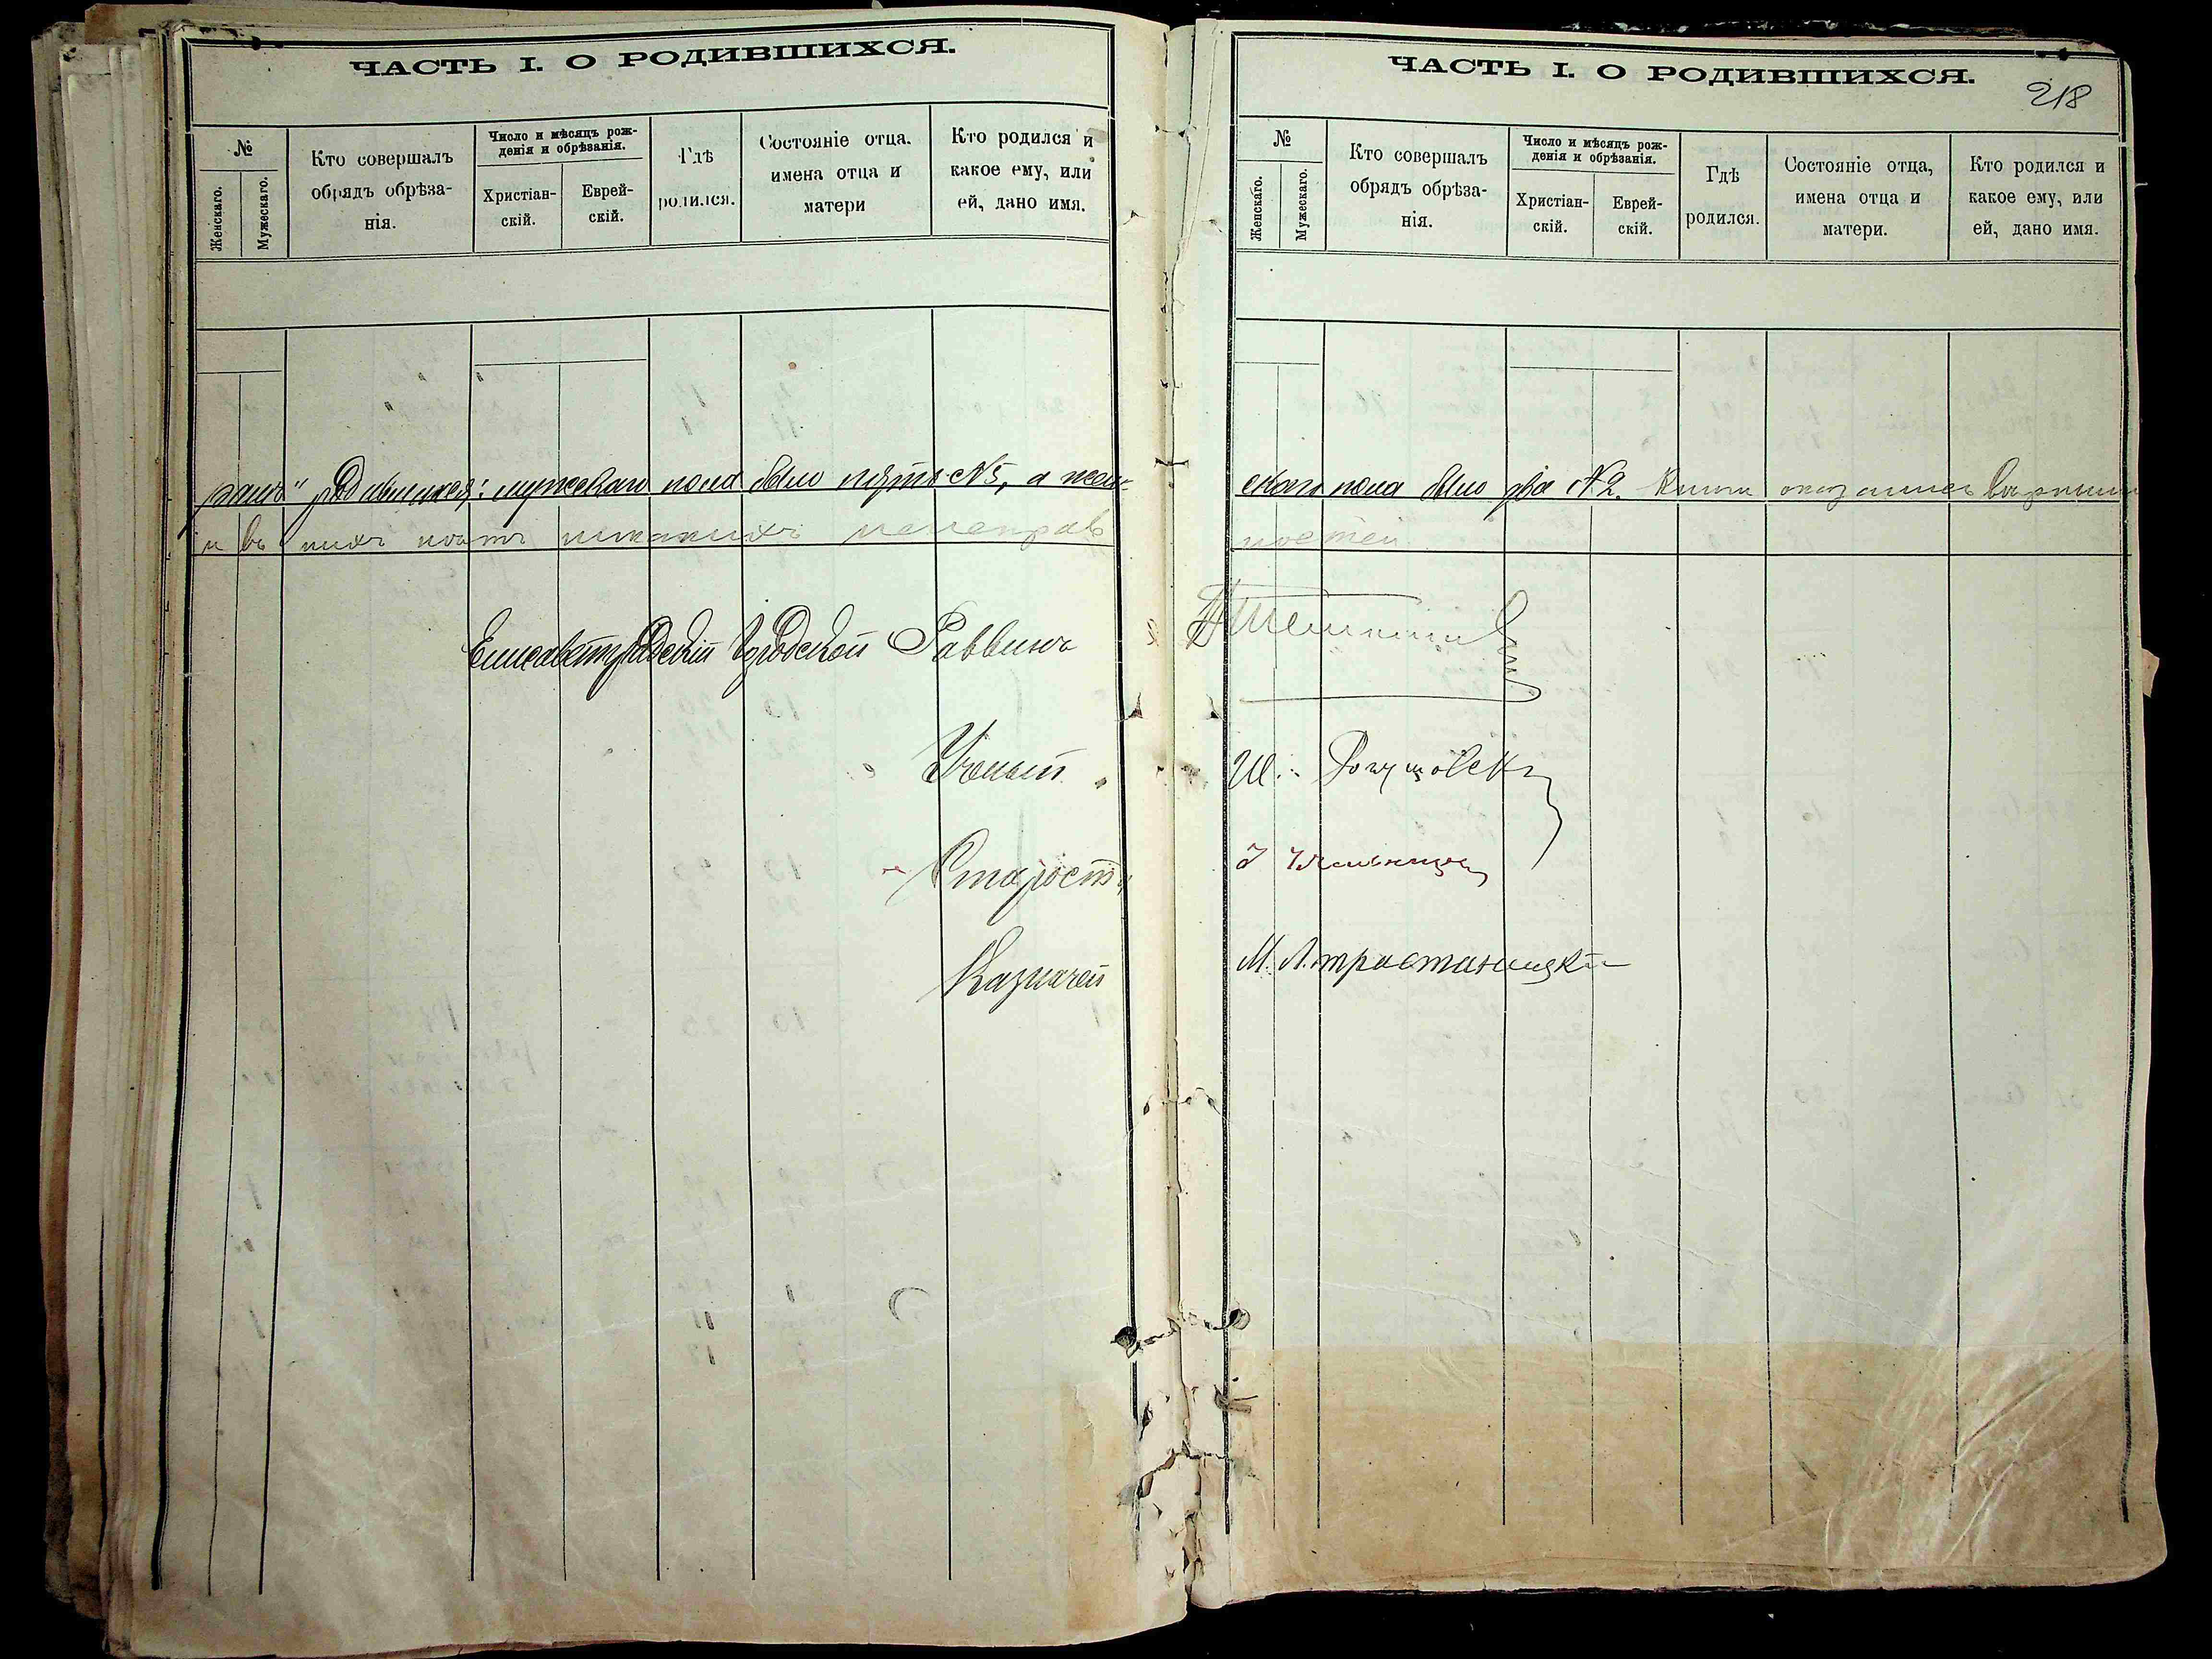 ЧАСТЬ I. О РОДИВШИХСЯ.
№
Женскаго.
Мужескаго.
Кто совершалъ
обрядъ обрѣза-
нія.
Число и мѣсяцъ рож-
денія и обрѣзанія.
Христіан-
скій.
Еврей-
скій.
Гдѣ
родился.
Состояніе отца,
имена отца и
матери
Кто родился и
какое ему, или
ей, дано имя.
родившихся: мужескаго пола было пять №5, а жен-
и въ нихъ нѣтъ никакихъ неисправ
Елисаветградскій Городской Раввинъ
Ученый
Староста
Казначей
ЧАСТЬ I. О РОДИВШИХСЯ.
218
№
Женскаго.
Мужескаго.
Кто совершалъ
обрядъ обрѣза-
нія.
Число и мѣсяцъ рож-
денія и обрѣзанія.
Христіан-
скій.
Еврей-
скій.
Гдѣ
родился.
Состояніе отца,
имена отца и
матери.
Кто родился и
какое ему, или
ей, дано имя.
скаго пола было два №2. Книги оказались вѣрными
ностей.
Ш.
М. Л.